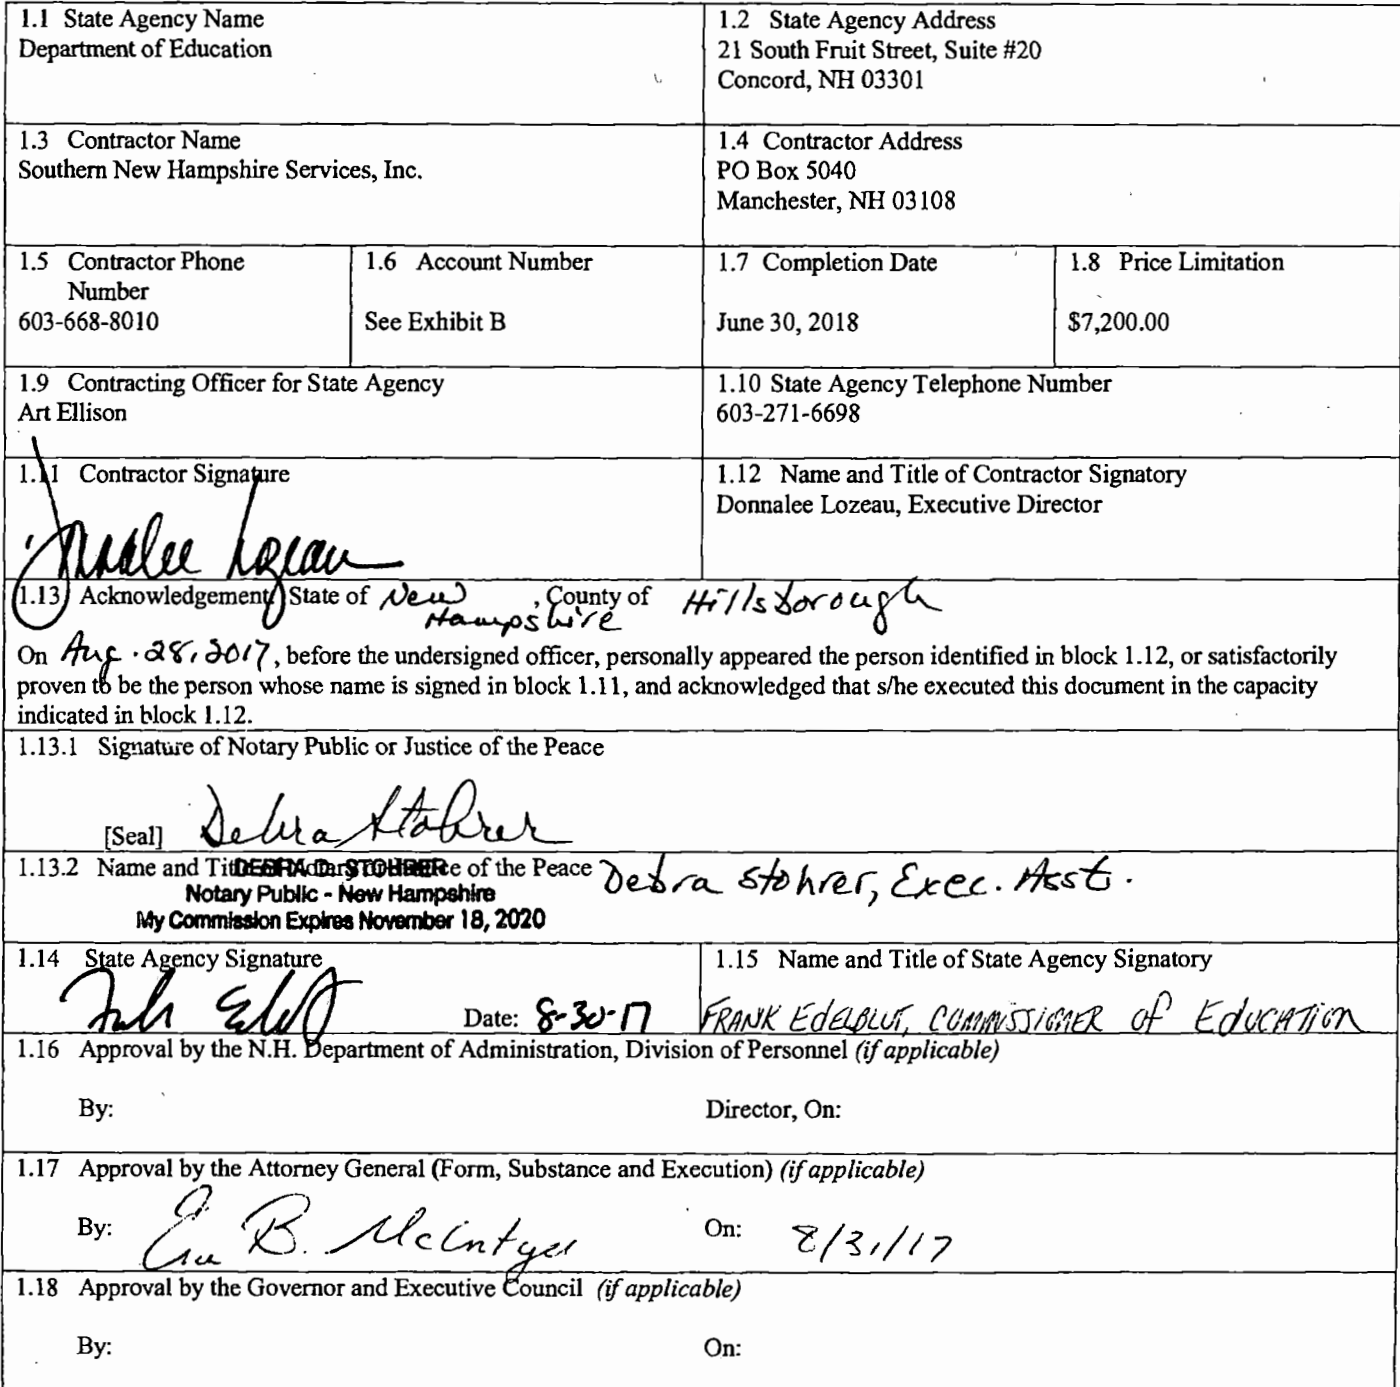 1.1 State Agency Name
Department of Education
1.2 State Agency Address
21 South Fruit Street, Suite #20
Concord, NH 03301
1.3 Contractor Name
Southern New Hampshire Services, Inc.
1.4 Contractor Address
PO Box 5040
Manchester, NH 03108
1.5 Contractor Phone
Number
603-668-8010
1.6 Account Number
See Exhibit B
1.7 Completion Date
June 30, 2018
1.8 Price Limitation
$7,200.00
1.9 Contracting Officer for State Agency
Art Ellison
1.10 State Agency Telephone Number
603-271-6698
1.11 Contractor Signature
Donnalee Lozeau
1.12 Name and Title of Contractor Signatory
Donnalee Lozeau, Executive Director
1.13 Acknowledgement: State of New Hampshire, County of Hillsborough
On Aug. 28, 2017, before the undersigned officer, personally appeared the person identified in block 1.12, or satisfactorily
proven to be the person whose name is signed in block 1.11, and acknowledged that s/he executed this document in the capacity
indicated in block 1.12.
1.13.1 Signature of Notary Public or Justice of the Peace
[Seal] Debra Stohrer
1.13.2 Name and Title of the Peace Debra Stohrer, Exec. Asst.
DEBRA D. STOHRER
Notary Public - New Hampshire
My Commission Expires November 18, 2020
1.14 State Agency Signature
Date: 8-30-17
1.15 Name and Title of State Agency Signatory
FRANK EdELBLUT, COMMISSIONER of EdUCATION
1.16 Approval by the N.H. Department of Administration, Division of Personnel (if applicable)
By: Director, On:
1.17 Approval by the Attorney General (Form, Substance and Execution) (if applicable)
By: B. McIntyre On: 8/31/17
1.18 Approval by the Governor and Executive Council (if applicable)
By: On: